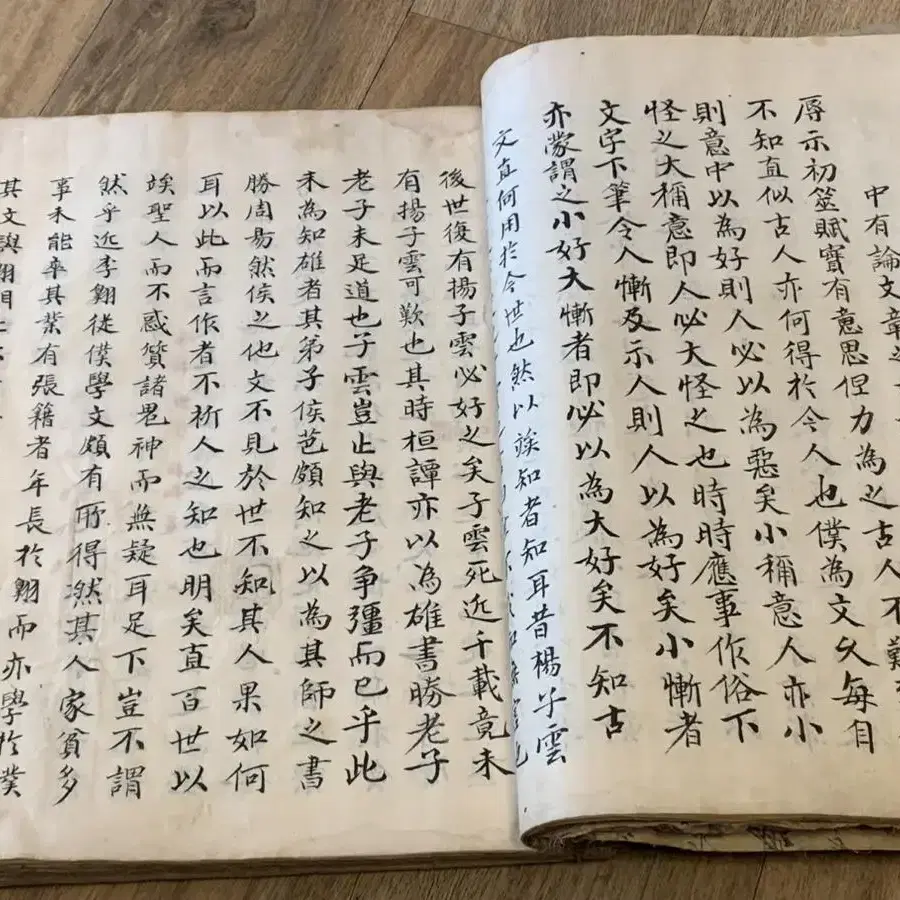 中有論文章之
辱示初筮賦實有意思但力為之古人不難
不知直似古人亦何得於今人也僕為文久每自
則意中以為好則人必以為惡矣小稱意人亦小
怪之大稱意即人必大怪之也時時應事作俗下
文字下筆令人慚及示人則人以為好矣小慚者
亦蒙謂之小好大慚者即必以為大好矣不知古
文直何用於今世也然以竢知者知耳昔楊子雲
後世復有揚子雲必好之矣子雲死近千載竟未
有揚子雲可歎也其時桓譚亦以為雄書勝老子
老子未足道也子雲豈止與老子争彊而已乎此
未為知雄者其弟子侯芭頗知之以為其師之書
勝周易然侯之他文不見於世不知其人果如何
耳以此而言作者不祈人之知也明矣直百世以
竢聖人而不惑質諸鬼神而無疑耳足下豈不謂
然乎近李翱從僕學文頗有所得然其人家貧多
事未能卒其業有張籍者年長於翱而亦學於僕
其文與翱相上